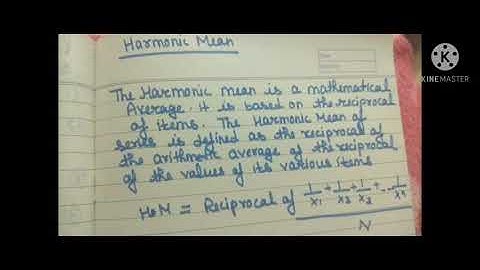 Harmonic Mean
The Harmonic mean is a mathematical
Average. It is based on the reciprocal
of items. The Harmonic Mean of
series is defined as the reciprocal of
the arithmetic average of the reciprocal
of the values of its various items
H.M = Reciprocal of 1/x1 + 1/x2 + 1/x3 + -- 1/xn
N
K
KINEMASTER